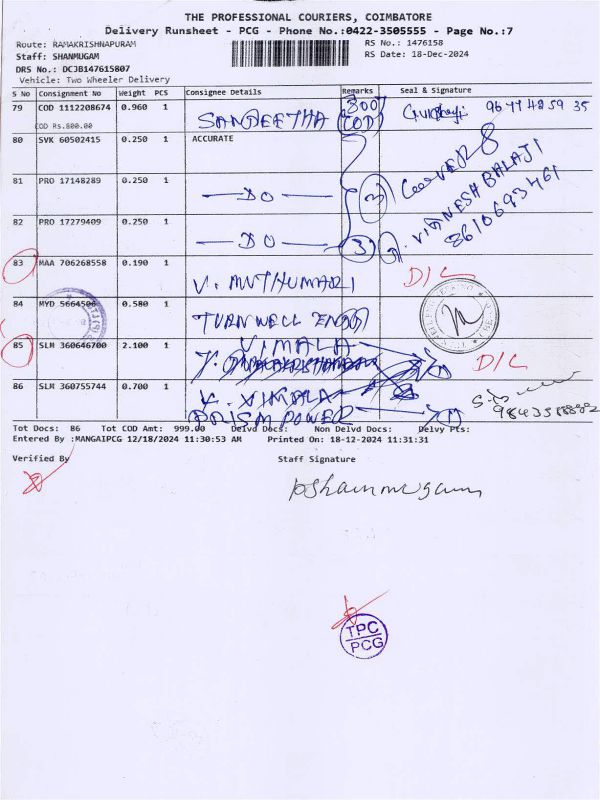 THE PROFESSIONAL COURIERS, COIMBATORE
Delivery Runsheet - PCG - Phone No.:0422-3505555 - Page No.:7
Route: RAMAKRISHNAPURAM RS No.: 1476158
Staff: SHANMUGAM RS Date: 18-Dec-2024
DRS No.: DCJB147615807
Vehicle: Two Wheeler Delivery
S No Consignment No Weight PCS Consignee Details Remarks Seal & Signature
79 COD 1112208674 0.960 1 SANGEETHA 800 COD
COD Rs.800.00
80 SVK 60502415 0.250 1 ACCURATE
81 PRO 17148289 0.250 1 —DO—
82 PRO 17279409 0.250 1 —DO— 3 VIGNESH BALAJI 8610693461
83 MAA 706268558 0.190 1 V. MUTHUMARI D/L
84 MYD 5664506 0.580 1
85 SLM 360646700 2.100 1 VIMALA D/L
86 SLM 360755744 0.700 1
PRISM POWER
Tot Docs: 86 Tot COD Amt: 999.00 Delvd Docs: Non Delvd Docs: Delvy Pts:
Entered By :MANGAIPCG 12/18/2024 11:30:53 AM Printed On: 18-12-2024 11:31:31
Verified By Staff Signature
TPC
PCG